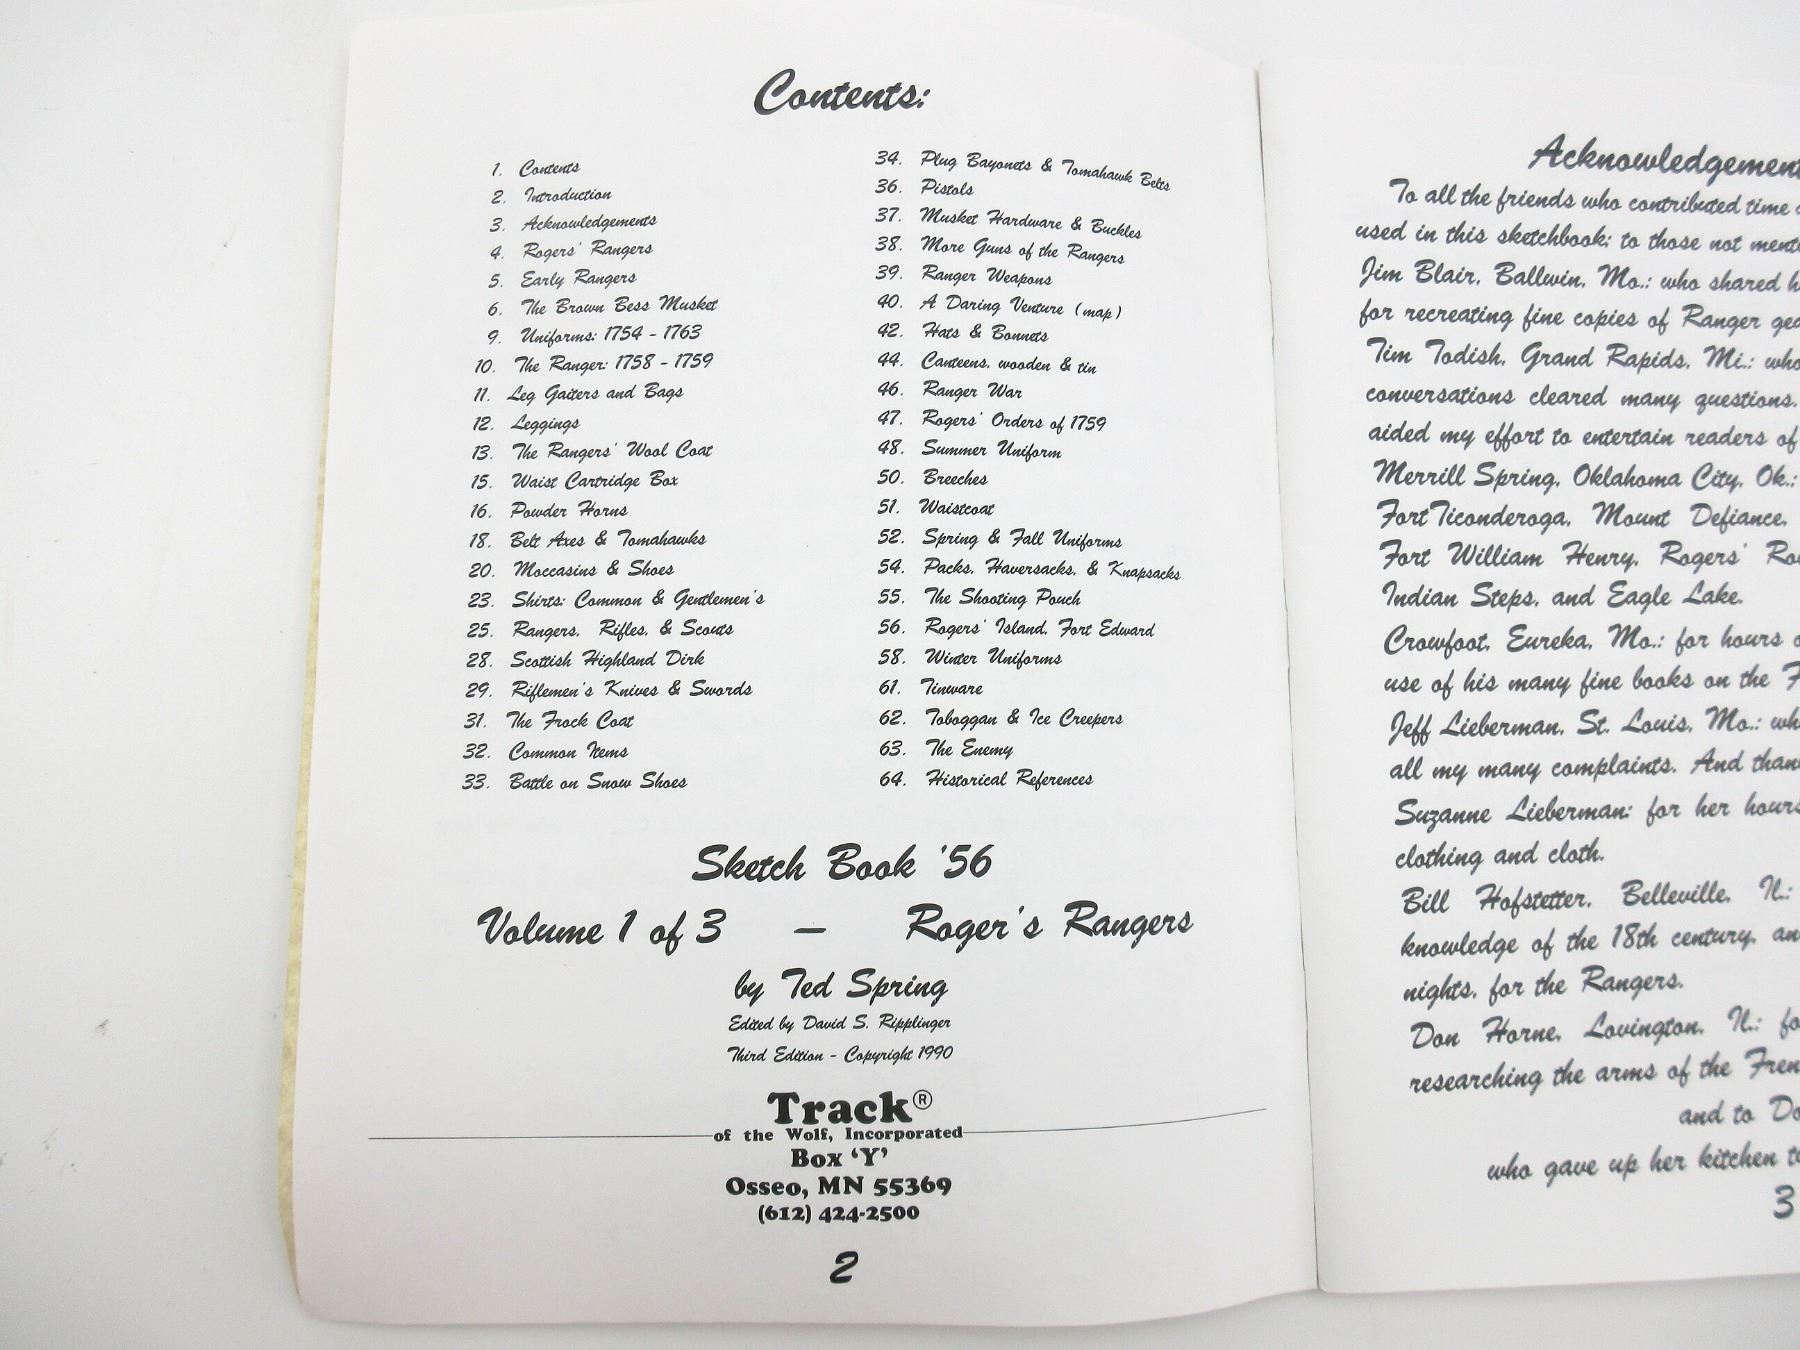 Contents:
1. Contents
2. Introduction
3. Acknowledgements
4. Rogers' Rangers
5. Early Rangers
6. The Brown Bess Musket
9. Uniforms: 1754 - 1763
10. The Ranger: 1758 - 1759
11. Leg Gaiters and Bags
12. Leggings
13. The Rangers' Wool Coat
15. Waist Cartridge Box
16. Powder Horns
18. Belt Axes & Tomahawks
20. Moccasins & Shoes
23. Shirts: Common & Gentlemen's
25. Rangers, Rifles, & Scouts
28. Scottish Highland Dirk
29. Riflemen's Knives & Swords
31. The Frock Coat
32. Common Items
33. Battle on Snow Shoes
34. Plug Bayonets & Tomahawk Belts
36. Pistols
37. Musket Hardware & Buckles
38. More Guns of the Rangers
39. Ranger Weapons
40. A Daring Venture (map)
42. Hats & Bonnets
44. Canteens, wooden & tin
46. Ranger War
47. Rogers' Orders of 1759
48. Summer Uniform
50. Breeches
51. Waistcoat
52. Spring & Fall Uniforms
54. Packs, Haversacks, & Knapsacks
55. The Shooting Pouch
56. Rogers' Island, Fort Edward
58. Winter Uniforms
61. Tinware
62. Toboggan & Ice Creepers
63. The Enemy
64. Historical References
Sketch Book '56
Volume 1 of 3 — Roger's Rangers
by Ted Spring
Edited by David S. Ripplinger
Third Edition - Copyright 1990
Track®
of the Wolf, Incorporated
Box 'Y'
Osseo, MN 55369
(612) 424-2500
2
Acknowledgement
To all the friends who contributed time
used in this sketchbook; to those not
Jim Blair, Ballwin, Mo.: who shared
for recreating fine copies of Ranger
Tim Todish, Grand Rapids, Mi.: who
conversations cleared many questions.
aided my effort to entertain readers of
Merrill Spring, Oklahoma City, Ok.:
Fort Ticonderoga, Mount Defiance,
Fort William Henry, Rogers'
Indian Steps, and Eagle Lake.
Crowfoot, Eureka, Mo.: for hours
use of his many fine books on the
Jeff Lieberman, St. Louis, Mo.:
all my many complaints. And
Suzanne Lieberman: for her hours
clothing and cloth.
Bill Hofstetter, Belleville, Il.:
knowledge of the 18th century,
nights, for the Rangers.
Don Horne, Lovington, Il.:
researching the arms of the
and to
who gave up her kitchen
3